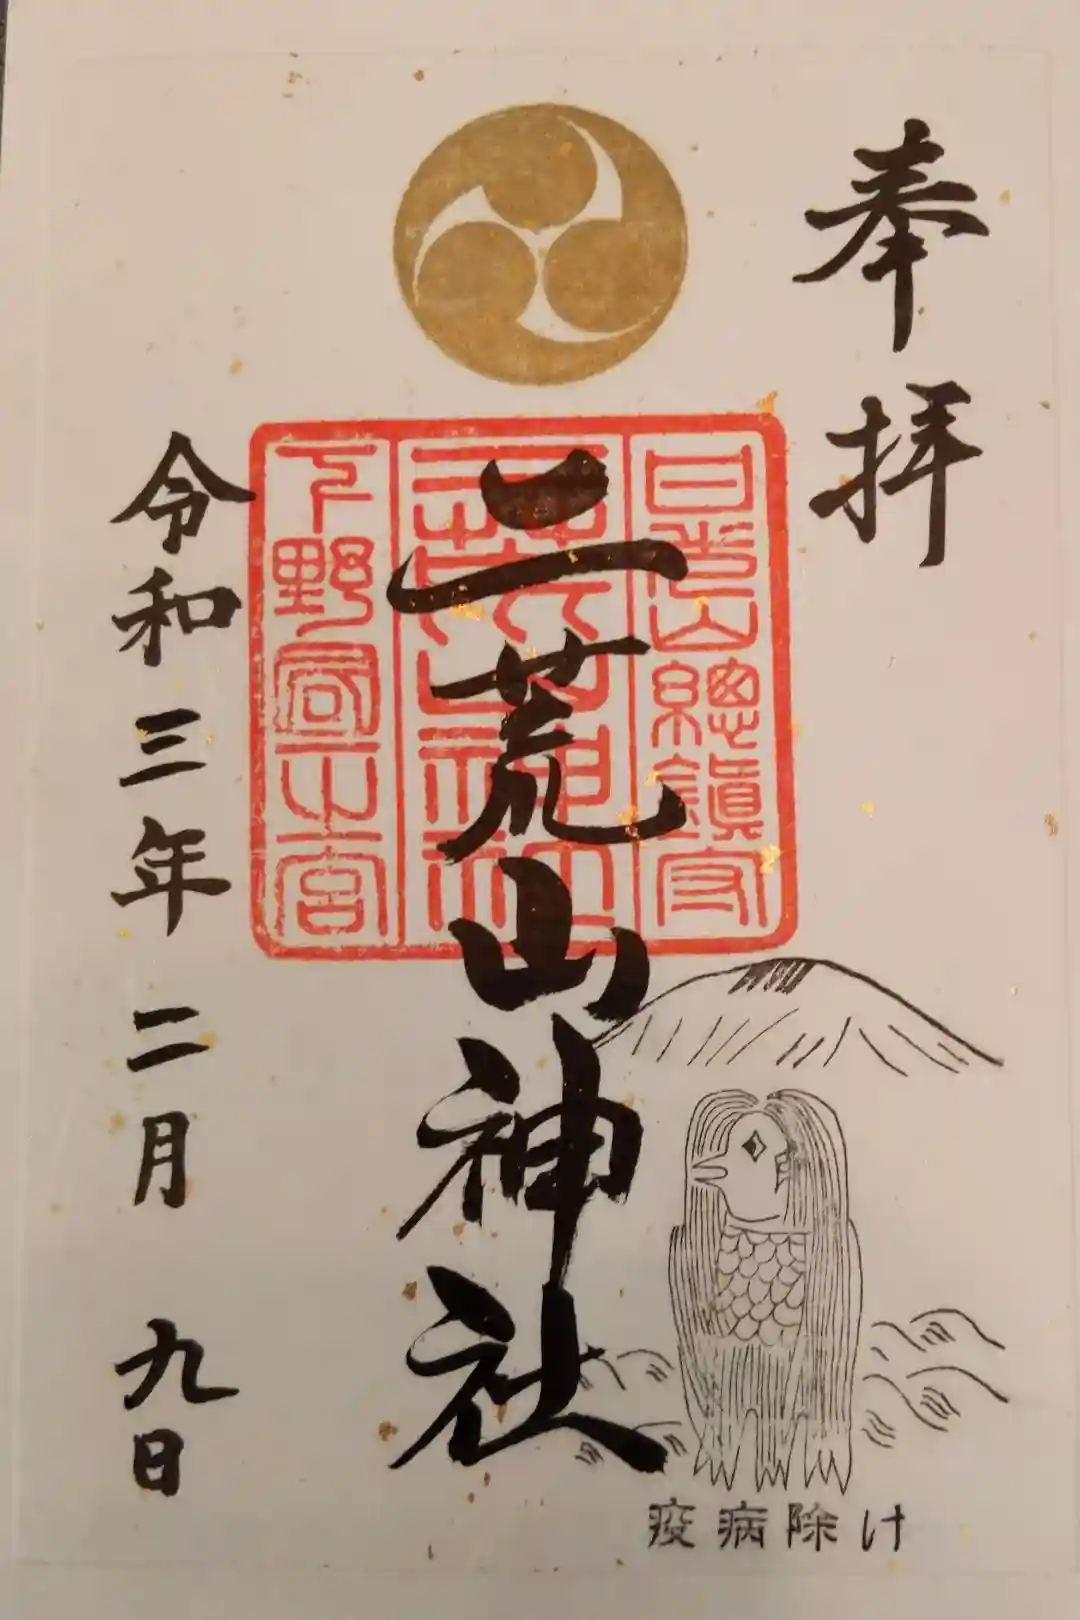 奉拝
日光山總鎮守
二荒山神社
下野國一之宮
二荒山神社
令和三年二月九日
疫病除け